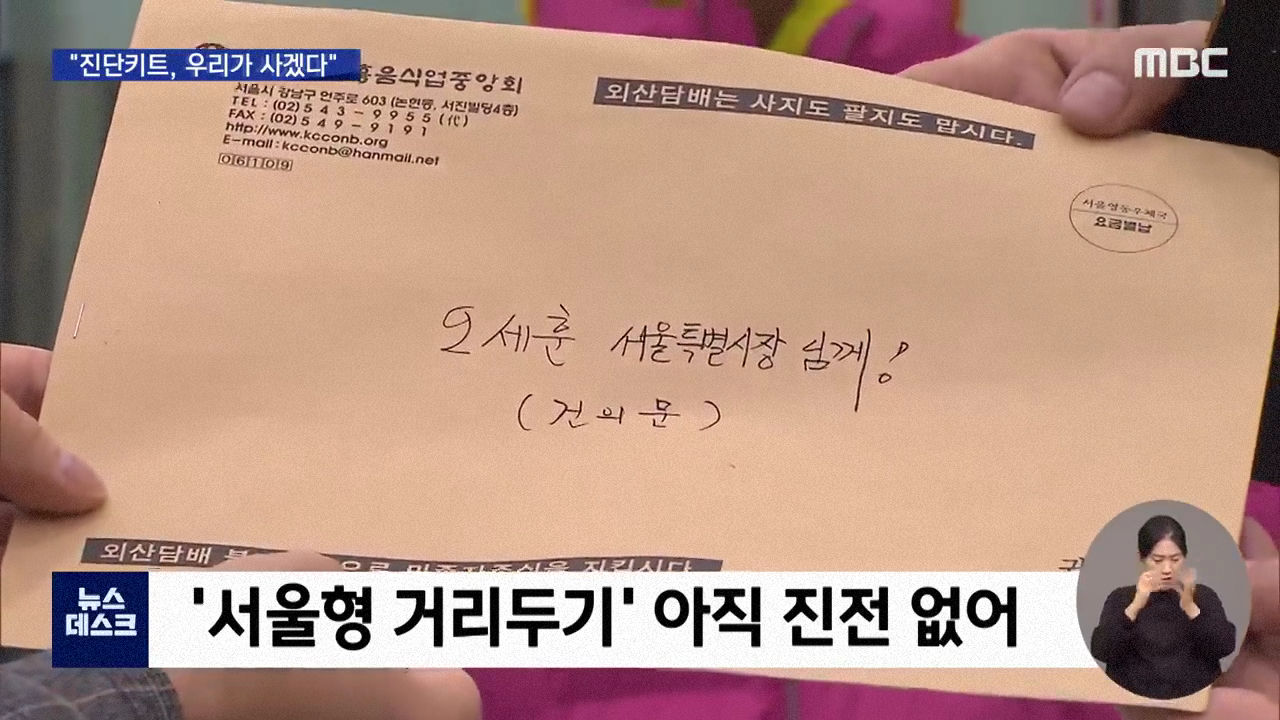 "진단키트, 우리가 사겠다"
MBC
흥음식업중앙회
서울시 강남구 언주로 603 (논현동, 서진빌딩4층)
TEL : (02) 5 4 3 - 9 9 5 5 (代)
FAX : (02) 5 4 9 - 9 1 9 1
http://www.kcconb.org
E-mail : kcconb@hanmail.net
06109
외산담배는 사지도 팔지도 맙시다.
서울영동우체국
요금별납
오세훈 서울특별시장 님께!
(건의문)
외산담배
뉴스데스크
'서울형 거리두기' 아직 진전 없어